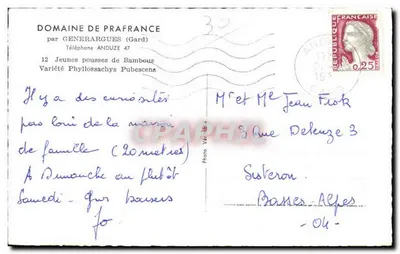 DOMAINE DE PRAFRANCE
par GENERARGUES (Gard)
Téléphone ANDUZE 47
12 Jeunes pousses de Bambous
Variété Phyllostachys Pubescens
Il y a des curiosités
pas loin de la maison
de famille (20 mètres)
A Dimanche au plutôt
Samedi - Gros baisers
Jo
REPUBLIQUE FRANÇAISE
0,25
Mr et Me Jean
3 rue Deleuze 3
Sisteron
Basses-Alpes
-04-